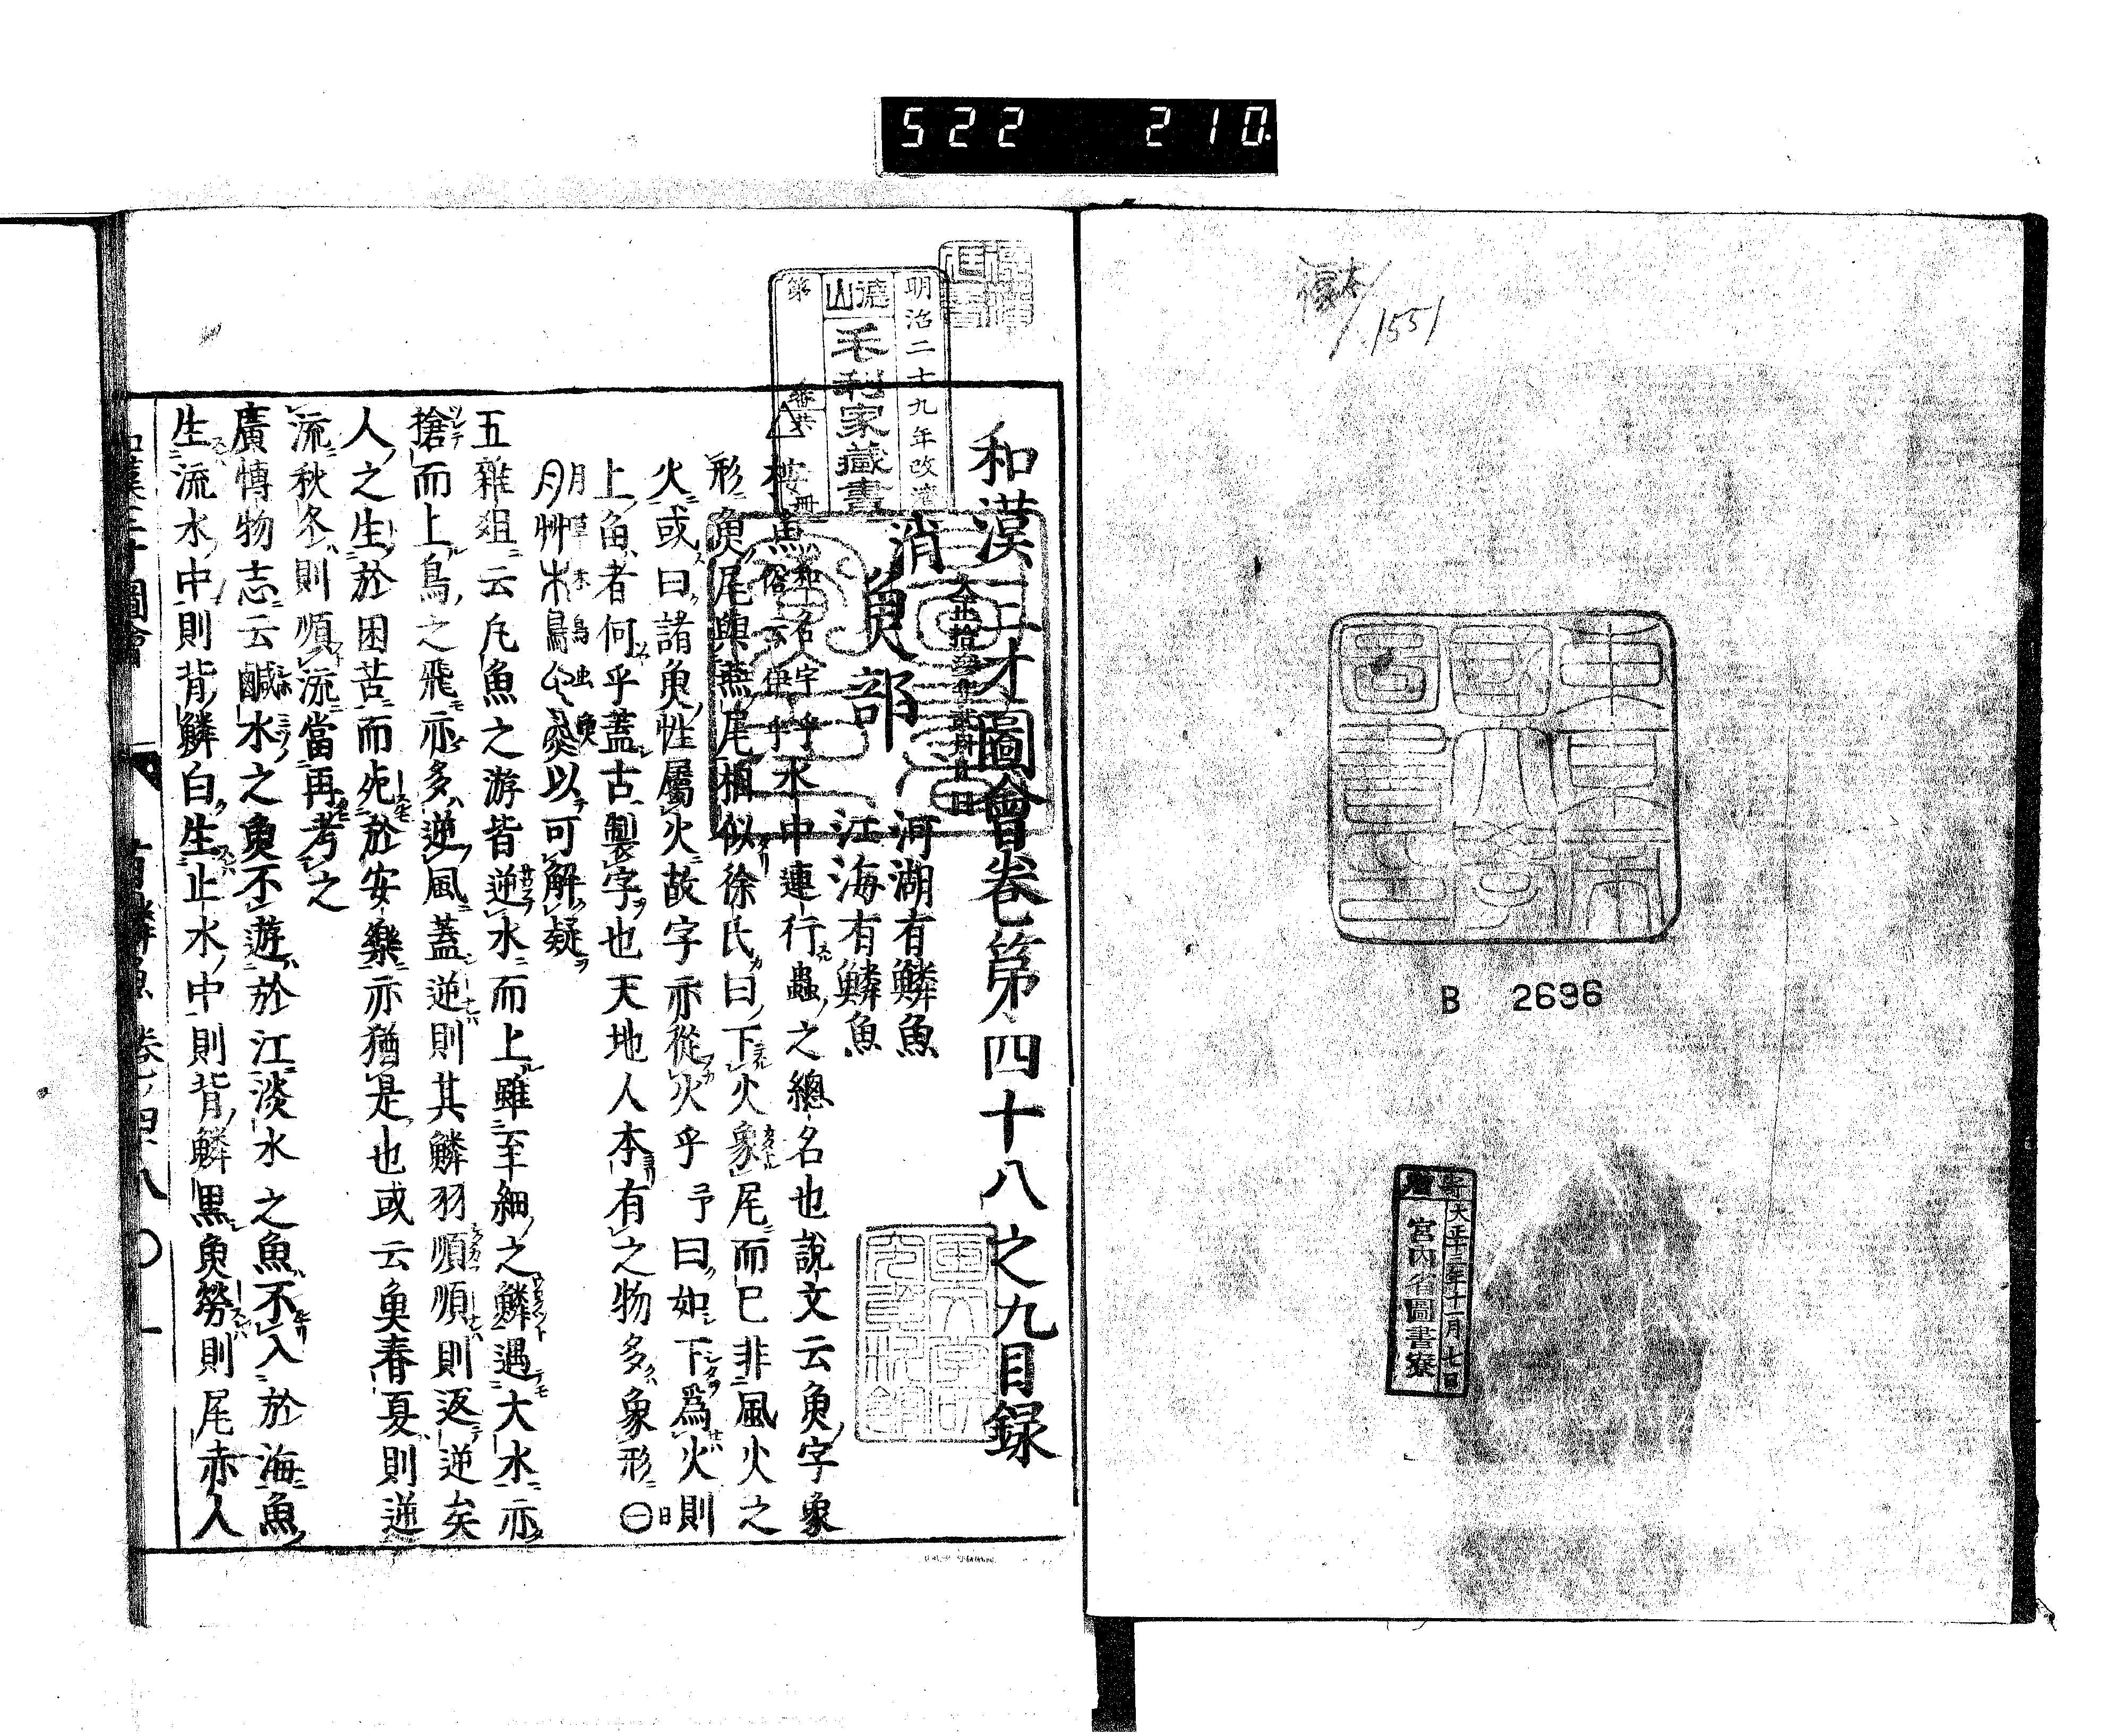 522 210.
複本/1551
東京帝
國大學
圖書印
B 2696
寄贈
大正十三年十一月七日
宮内省圖書寮
明治二十九年改濟
德山
毛利家藏書
第
番共
冊
和漢三才圖會卷第四十八之九目録
河湖有鱗魚
江海有鱗魚
魚部
△按魚和名宇乎俗云伊乎水中連行蟲之總名也說文云魚字象
形魚尾與燕尾相似徐氏曰下火象尾而已非風火之
火或曰諸魚性屬火故字亦從火乎予曰如下爲火則
上𠂊者何乎蓋古製字也天地人本有之物多象形〇日
月艸木鳥虫魚以可解疑
月草木鳥虫魚
五雜俎云凡魚之游皆逆水而上雖至細之鱗遇大水亦
搶而上鳥之飛亦多逆風蓋逆則其鱗羽順順則返逆矣
人之生於困苦而死於安樂亦猶是也或云魚春夏則逆
流秋冬則順流當再考之
廣博物志云鹹水之魚不遊於江淡水之魚不入於海魚
生流水中則背鱗白生止水中則背鱗黒魚勞則尾赤人